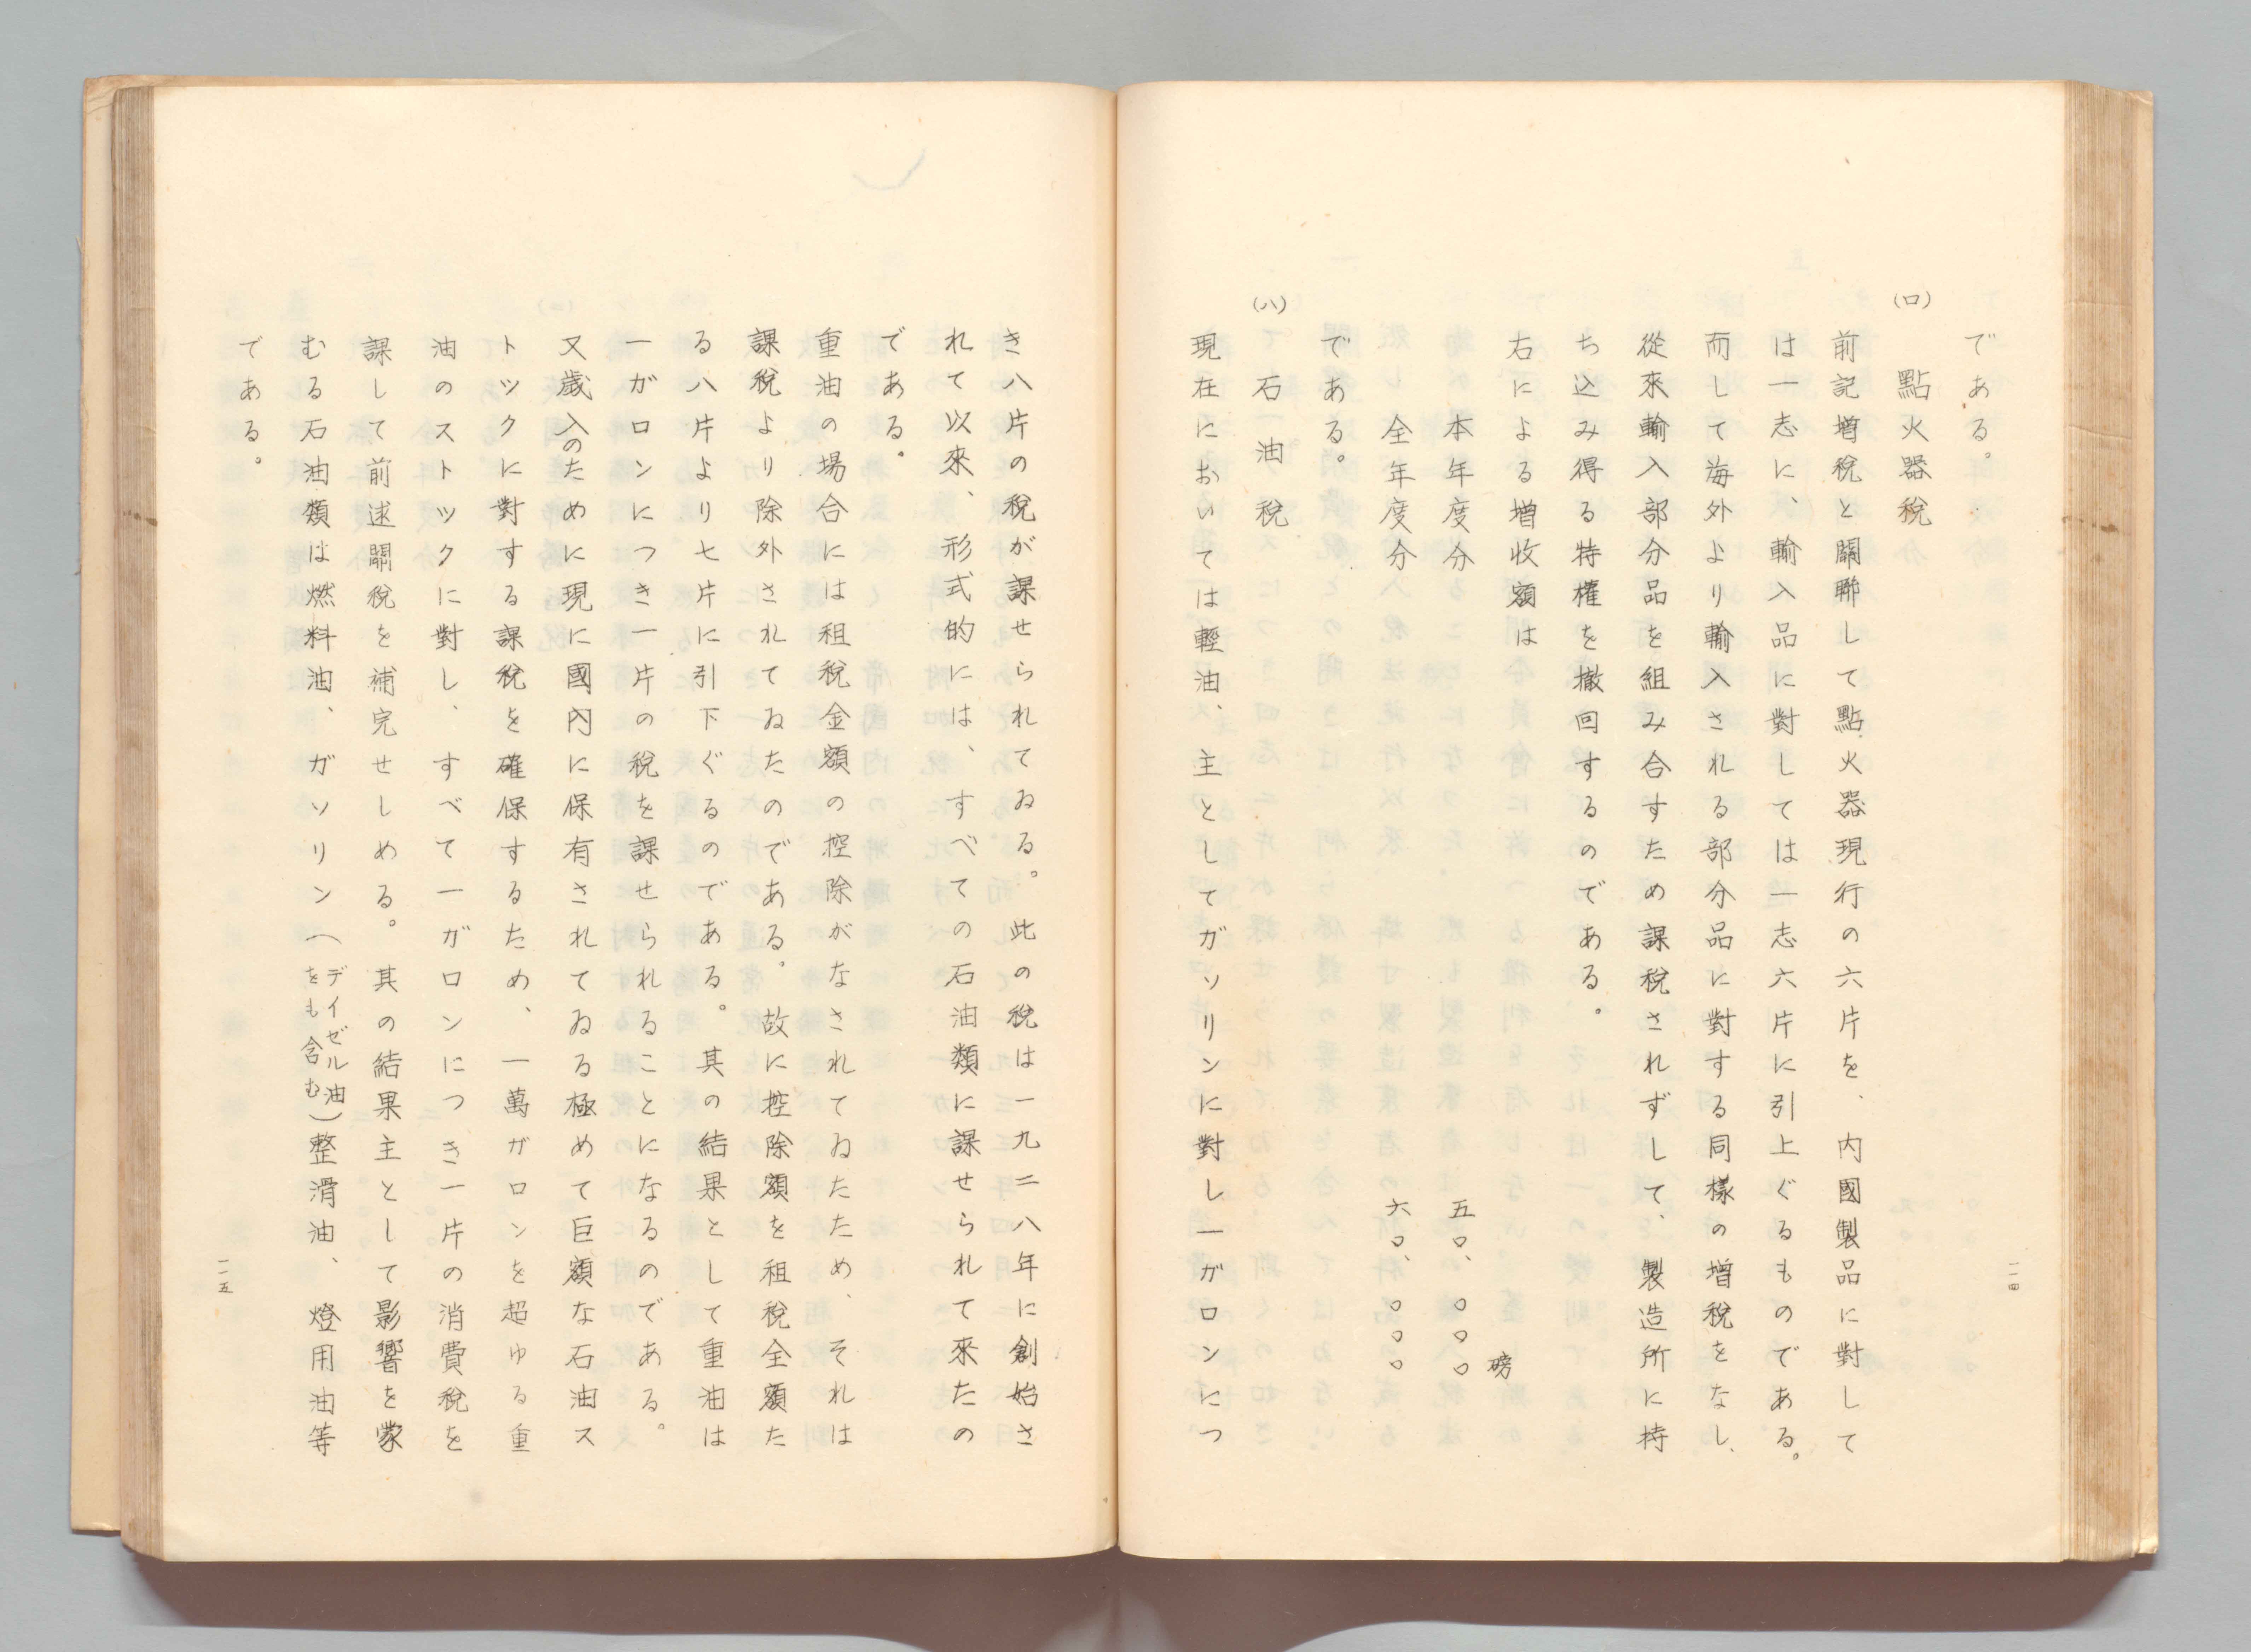 である。
(ロ) 點火器稅
前記增稅と關聯して點火器現行の六片を、內國製品に對して
は一志に、輸入品に對しては一志六片に引上ぐるものである。
而して海外より輸入される部分品に對する同樣の增稅をなし、
從來輸入部分品を組み合すため課稅されずして、製造所に持
ち込み得る特權を撤回するのである。
右による增收額は
磅
本年度分 五〇、〇〇〇
全年度分 六〇、〇〇〇
である。
(ハ) 石油稅
現在においては輕油、主としてガソリンに對し一ガロンにつ
一一四
き八片の稅が課せられてゐる。此の稅は一九二八年に創始さ
れて以來、形式的には、すべての石油類に課せられて來たの
である。
重油の場合には租稅金額の控除がなされてゐたため、それは
課稅より除外されてゐたのである。故に控除額を租稅全額た
る八片より七片に引下ぐるのである。其の結果として重油は
一ガロンにつき一片の稅を課せられることになるのである。
又歲入のために現に國內に保有されてゐる極めて巨額な石油ス
トツクに對する課稅を確保するため、一萬ガロンを超ゆる重
油のストツクに對し、すべて一ガロンにつき一片の消費稅を
課して前述關稅を補完せしめる。其の結果主として影響を蒙
むる石油類は燃料油、ガソリン（デイゼル油をも含む）整滑油、燈用油等
である。
一一五